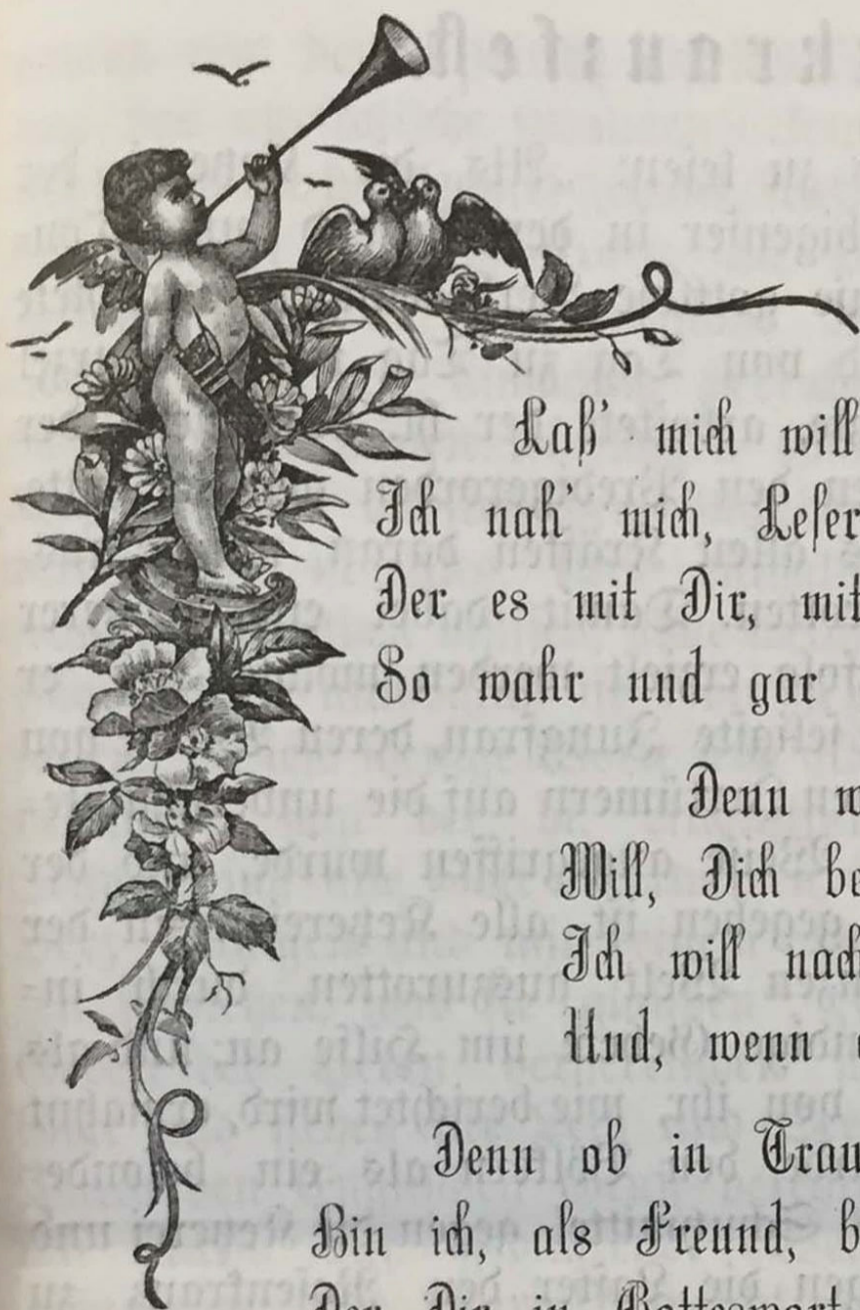 Laß' mich will
Ich nah' mich, Leser
Der es mit Dir, mit
So wahr und gar
Denn w
Will, Dich be
Ich will nach
Und, wenn
Denn ob in Trau
Bin ich, als Freund, b
Der Dir in Gotteswort